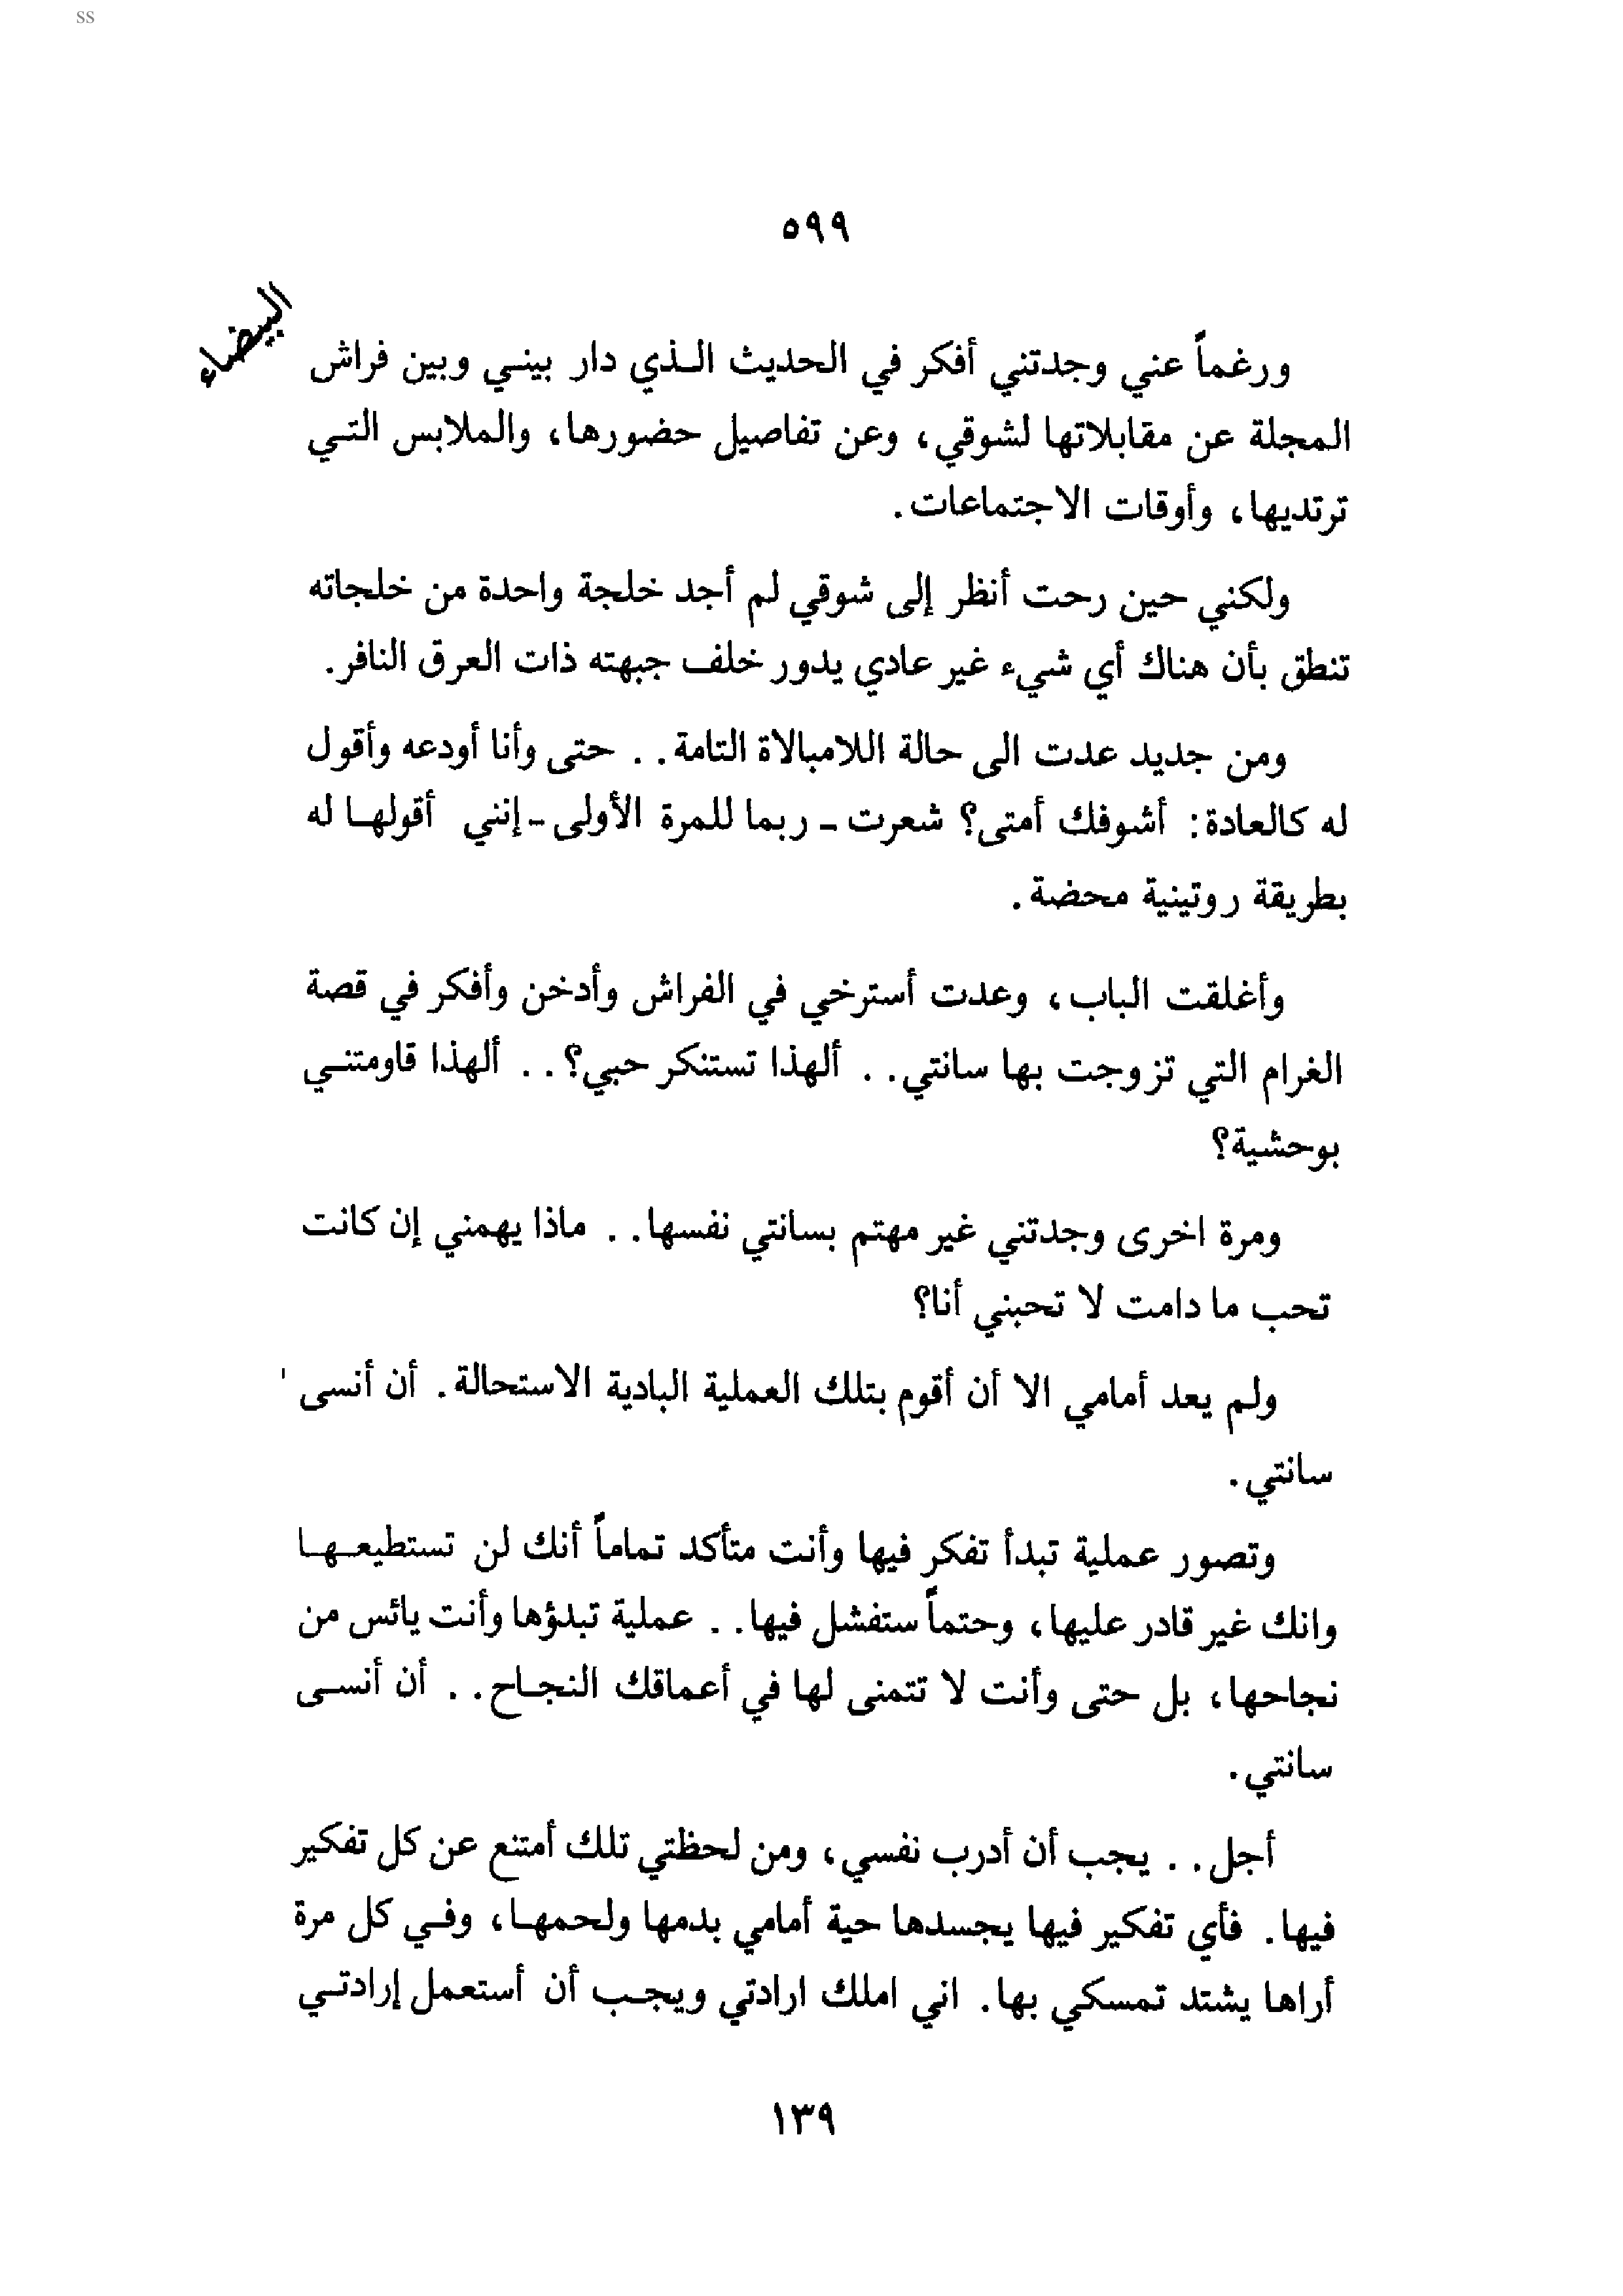 ss
٥٩٩
البيضاء
ورغماً عني وجدتني أفكر في الحديث الـذي دار بينـي وبين فراش
المجلة عن مقابلاتها لشوقي، وعن تفاصيل حضورها، والملابس التـي
ترتديها، وأوقات الاجتماعات.
ولكني حين رحت أنظر إلى شوقي لم أجد خلجة واحدة من خلجاته
تنطق بأن هناك أي شيء غير عادي يدور خلف جبهته ذات العرق النافر.
ومن جديد عدت الى حالة اللامبالاة التامة. . حتى وأنا أودعه وأقول
له كالعادة: أشوفك أمتى؟ شعرت - ربما للمرة الأولى - إنني أقولهـا له
بطريقة روتينية محضة.
وأغلقت الباب، وعدت أسترخي في الفراش وأدخن وأفكر في قصة
الغرام التي تزوجت بها سانتي. . ألهذا تستنكر حبي؟. . ألهذا قاومتنـي
بوحشية؟
ومرة اخرى وجدتني غير مهتم بسانتي نفسها. . ماذا يهمني إن كانت
تحب ما دامت لا تحبني أنا؟
ولم يعد أمامي الا أن أقوم بتلك العملية البادية الاستحالة. أن أنسى
سانتي.
وتصور عملية تبدأ تفكر فيها وأنت متأكد تماماً أنك لن تستطيعـهـا
وانك غير قادر عليها، وحتماً ستفشل فيها. . عملية تبدؤها وأنت يائس من
نجاحها، بل حتى وأنت لا تتمنى لها في أعماقك النجـاح. . أن أنسـى
سانتي.
أجل. . يجب أن أدرب نفسي، ومن لحظتي تلك أمتنع عن كل تفكير
فيها. فأي تفكير فيها يجسدها حية أمامي بدمها ولحمهـا، وفـي كل مرة
أراها يشتد تمسكي بها. اني املك ارادتي ويجـب أن أستعمل إرادتـي
١٣٩